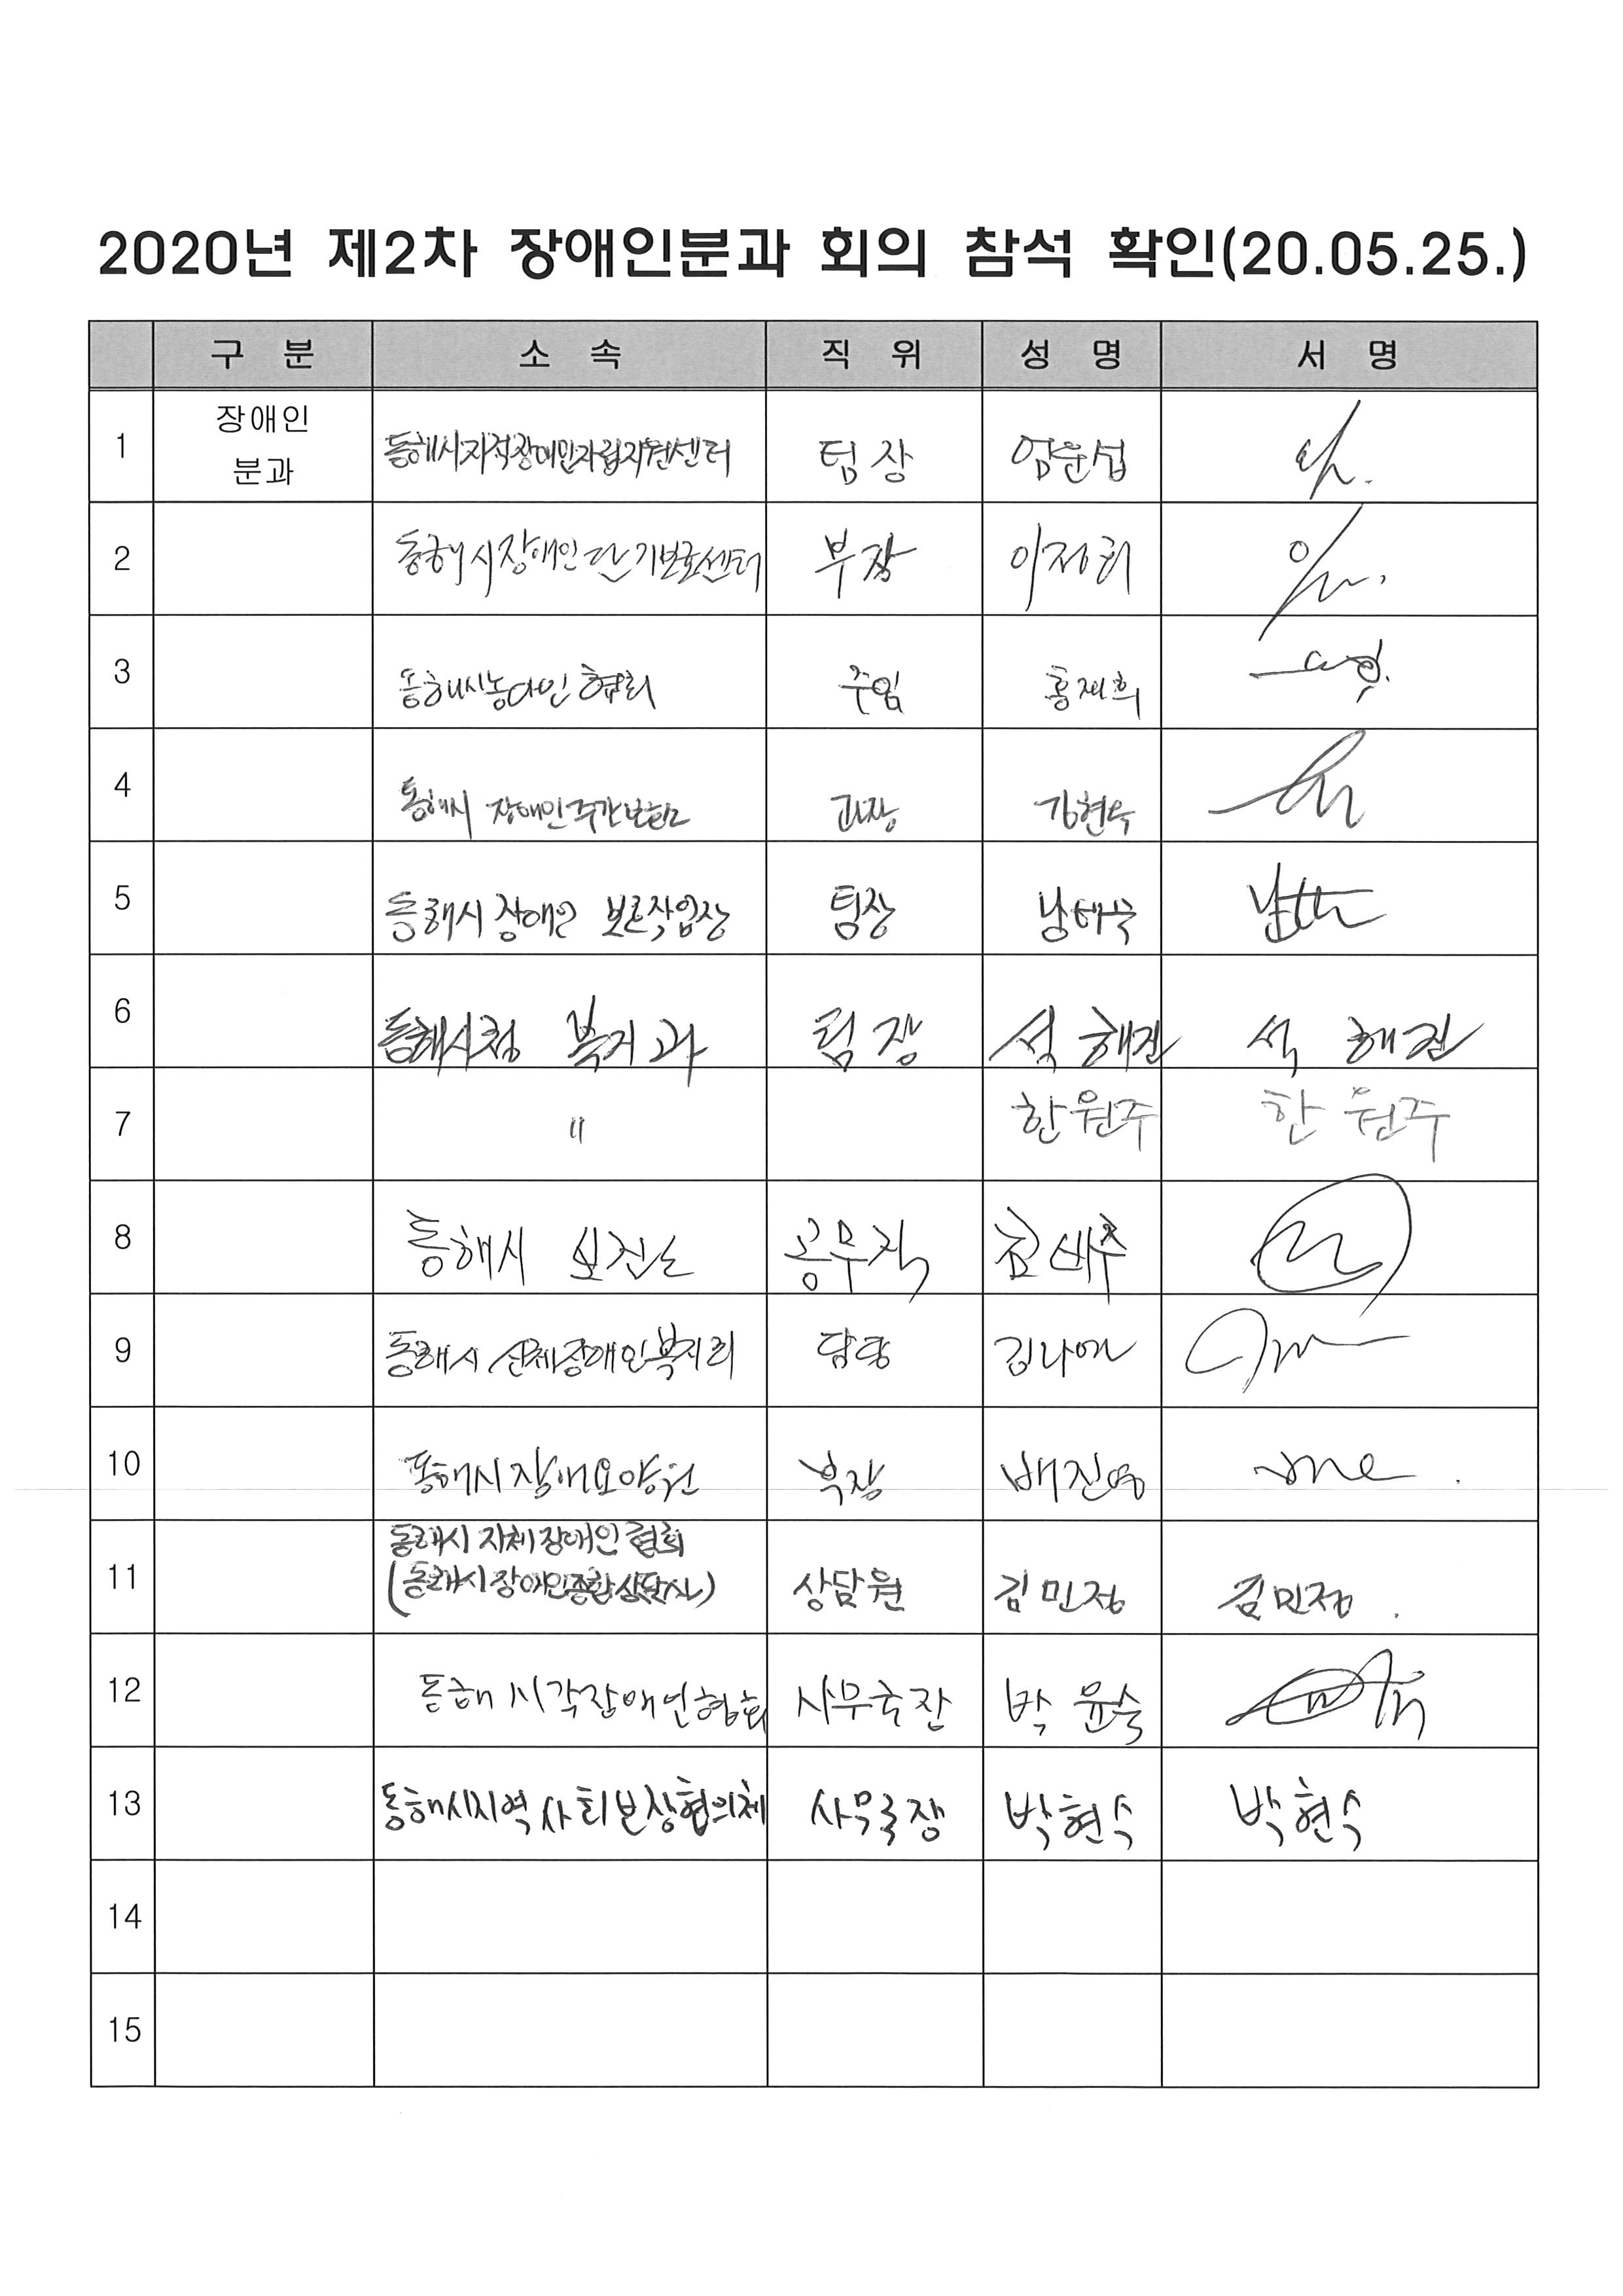 2020년 제2차 장애인분과 회의 참석 확인(20.05.25.)
구 분 소 속 직 위 성 명 서 명
1 장애인 분과 동해시지적장애인자립지원센터 팀장 엄운섭
2 동해시장애인단기보호센터 부장 이정희
3 동해시농아인협회 주임 홍재희
4 동해시 장애인주간보호소 과장 김현욱
5 동해시 장애인 보호작업장 팀장 남해숙
6 동해시청 복지과 팀장 석해진 석해진
7 〃 한원주 한원주
8 동해시 보건소 공무직
9 동해시 신체장애인복지회 담당 김나연
10 동해시장애요양원 부장 배진영
11 동해시 지체장애인협회
(동해시장애인종합상담실) 상담원 김민정 김민정
12 동해시각장애인협회 사무국장 박윤숙
13 동해시지역사회보장협의체 사무국장 박현수 박현수
14
15